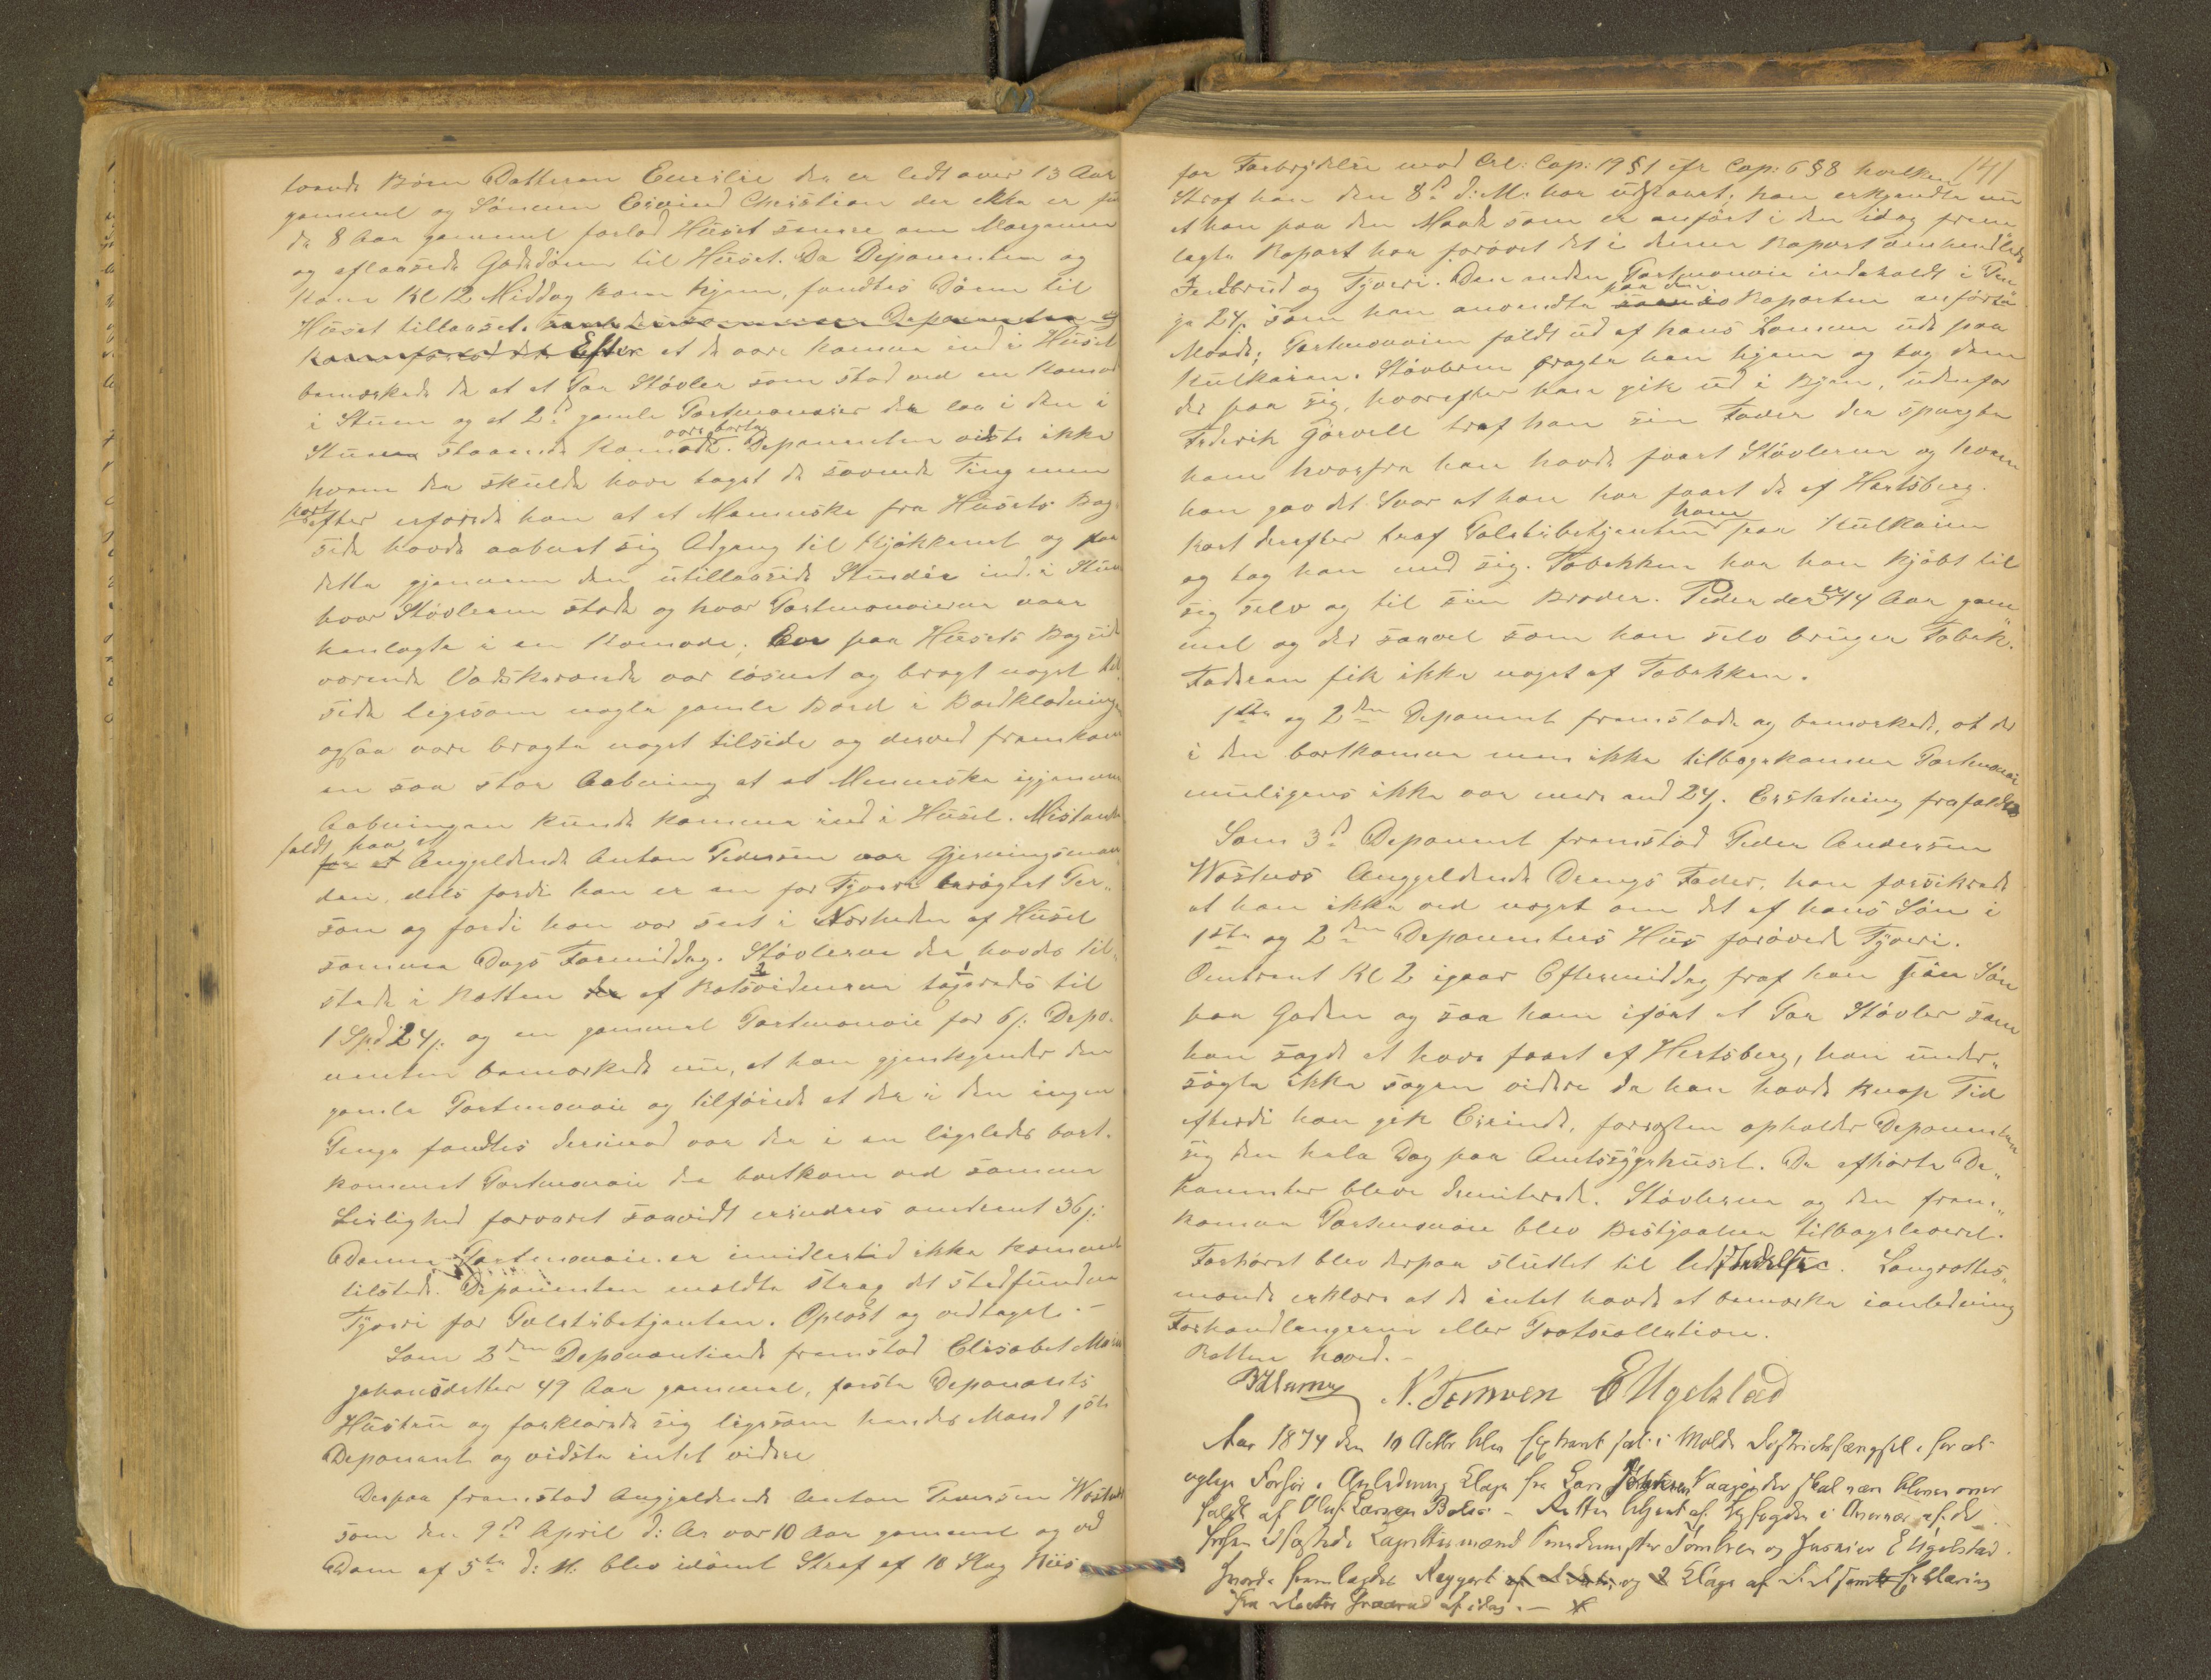 toende Børn Datteren Emilie der er lidt over 13 Aar
gammel og Sönnen Eivind Christian der ikke er fu
de 8 Aar gammel forlod Huset senere om Morgenen
og aflaasede Gadedören til Huset. Da Deponenten og
Kone Kl 12 Middag kom hjem, fandtes Dören til
Huset tillaaset.
Efter at de vare komne ind i Huset
bemærkede de at et Par Stövler som stod ved en Komode
i Stuen og at 2de gamle Portmonaier der laa i den i
Stuen staaende Komode vare borte. Deponenten vidste ikke
hvem der skulde have taget de savnede Ting men
kort efter erfarede han at et Menneske fra Husets Bag-
side havde aabnet sig Adgang til Kjökkenet og fra
dette gjennem den utillaasede Stuedör ind i Stuen
hvor Stövlerne stode og hvor Portmonaierne vare
henlagte i en Komode; En paa Husets Bagside
værende Vadskerende var lösnet og bragt noget til
side ligesom nogle gamle Bord i Bordklædningen
ogsaa vare bragte noget tilside og derved fremkom
en saa stor Aabning at et Menneske igjennem
Aabningen kunde komme ind i Huset. Mistanke
faldt paa at Angjeldende Anton Pedersen var Gjerningsman
den, dels fordi han er en for Tyveri berögtet Per-
son og fordi han var seet i Nærheden af Huset
samme Dags Formiddag. Stövlerne der havdes til
stede i Retten af Retsvidnerne taxeredes til
1 Spd 24 s: og en gammel Portmonaie for 6 s: Depo-
nenten bemærkede nu, at han gjenkjender den
gamle Portmonaie og tilföiede at der i den ingen
Penge fandtes derimod var der i en ligeledes bort-
kommet Portmonaie der bortkom ved samme
Leilighed forvaret saavidt erindres omtrent 36 s:
Denne Portmonaie er imidlertid ikke kommet
tilstede. Deponenten meldte strax det stedfundne
Tyveri for Politibetjenten. Oplæst og vedtaget.–
Som 2den Deponentinde fremstod Elisabet Marie
Johansdatter 49 Aar gammel, förste Deponents
Hustru og forklarede sig ligesom hendes Mand 1ste
Deponent og vidste intet videre
Derpaa fremstod Angjeldende Anton Pedersen Wöstnes
som den 9de April d: Ar var 10 Aar gammel og ved
Dom af 5te d: M: blev idömt Straf af 10 Slag Riis
141
for Forbrydelse mod Crl: Cap: 19 § 1 cfr Cap: 6 § 8 hvilken
Straf han den 8de d: M: har udstaaet; han erkjendte nu
at han paa den Maade som er anfört i den idag frem
lagte Raport har forövet det i denne Raport omhandlede
Indbrud og Tyveri. Den anden Portmonaie indeholdt i Pen
ge 24 s. som han anvendte paa den i Raporten anförte
Maade; Portmonaien faldt ud af hans Lomme ude paa
Kulkaien. Stövlerne bragte han hjem og tog dem
der paa sig, hvorefter han gik ud i Byen, udenfor
Frederik Görvell traf han sin Fader der spurgte
ham hvorfra han havde faaet Stövlerne og hvem
han gav det Svar at han har faaet de af Hertsberg.
Kort derefter traf Politibetjenten ham paa Kulkaien
og tog ham med sig. Tobakken har han kjöbt til
sig selv og til sin Broder. Peder der er 14 Aar gam
mel og der saavel som han selv bruger Tobak.
Faderen fik ikke noget af Tobakken.
1ste og 2den Deponent fremstode og bemærkede, at der
i den bortkomne men ikke tilbagekomne Portmonaie
muligens ikke var mere end 24 s. Erstatning frafaldes
Som 3de Deponent fremstod Peder Andersen
Wöstnes Angjeldende Drengs Fader, han forsikrede
at han ikke ved noget om det af hans Sön i
1ste og 2den Deponenters Hus forövede Tyveri.
Omtrent Kl 2 igaar Eftermiddag traf han sin Sön
paa Gaden og saa ham ifört et Par Stövler som
han sagde at have faaet af Hertsberg, han under-
sögte ikke sagen videre da han havde knap Tid
efterdi han gik Erinde, forresten opholder Deponenten
sig den hele Dag paa Amtssygehuset. De afhörte De-
ponenter bleve dimiterede. Stövlerne og den frem-
komne Portmonaie blev Bestjaalne tilbageleveret.
Forhöret blev derpaa sluttet til Udfærdigelse. Laugrettes-
mænde erklære at de intet havde at bemærke ianledning
Forhandlingerne eller Protocollation.
Retten hævet.–
N. Tömven E Ugelstad
Aar 1874 den 10 Octbr blev Extraret sat i Molde Distriktsfængsel for at
optage Forhör i Anledning Klage fra Lars Vaagö der skal være bleven over
faldt af Oluf Larsen Bolsö – Retten betjent af Byfogden i Overvær af de
Laugrettesmænd Tömven og E Ugelstad.
fremlagdes Rapport og Klage af
fra Doctor af idag. –